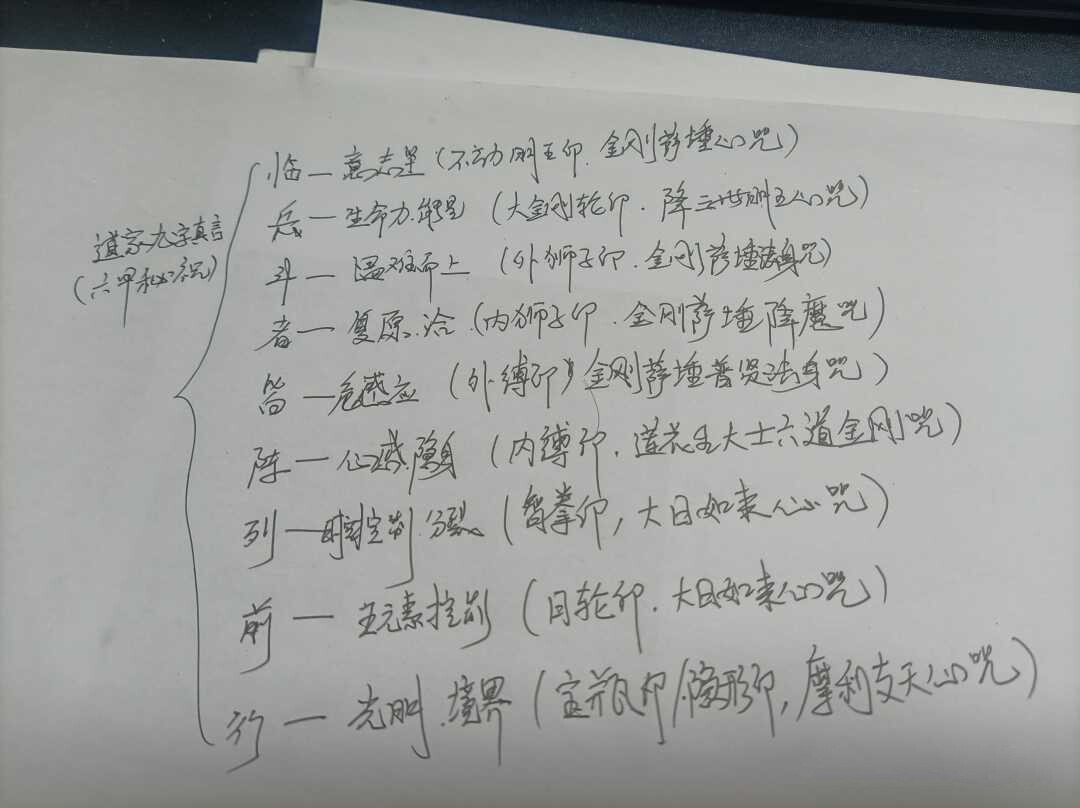 道家九字真言
(六甲秘祝)
临—意志量(不动明王印.金刚萨埵心咒)
兵—生命力.能量(大金刚轮印.降三世明王心咒)
斗—遇难而上(外狮子印.金刚萨埵法身咒)
者—复原.治(内狮子印.金刚萨埵降魔咒)
皆—危感应(外缚印,金刚萨埵普贤法身咒)
阵—心感.隐身(内缚印.莲花生大士六道金刚咒)
列—时空控制.分裂(智拳印,大日如来心咒)
前—五元素控制(日轮印.大日如来心咒)
行—光明.境界(宝瓶印/隐形印,摩利支天心咒)